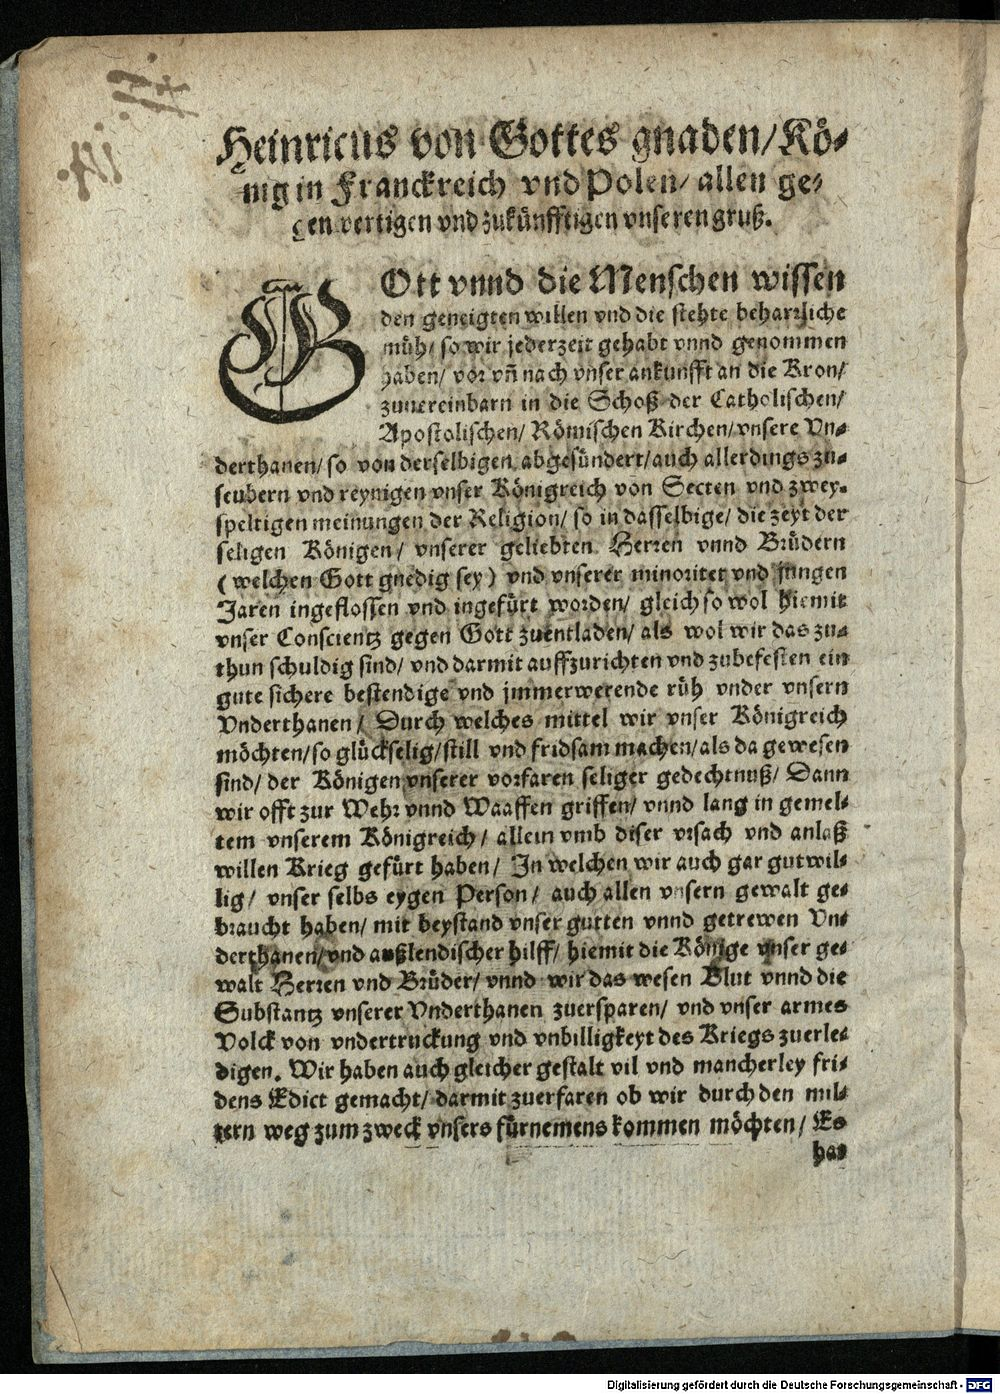 Heinricus von Gottes gnaden/ Kö-
nig in Franckreich vnd Polen/ allen ge-
genwertigen vnd zukünfftigen vnseren gruß.
GOtt vnnd die Menschen wissen
den geneigten willen vnd die stehte beharrliche
müh/ so wir jederzeit gehabt vnnd genommen
haben/ vor vñ nach vnser ankunfft an die Kron/
zuuereinbarn in die Schoß der Catholischen/
Apostolischen/ Römischen Kirchen/ vnsere Vn-
derthanen/ so von derselbigen abgesündert/ auch allerdings zu-
seubern vnd reynigen vnser Königreich von Secten vnd zwey-
speltigen meinungen der Religion/ so in dasselbige/ die zeyt der
seligen Königen/ vnserer geliebten Herren vnnd Brüdern
(welchen Gott gnedig sey) vnd vnserer minoritet vnd jungen
Jaren ingeflossen vnd ingefürt worden/ gleich so wol hiemit
vnser Conscientz gegen Gott zuentladen/ als wol wir das zu-
thun schuldig sind/ vnd darmit auffzurichten vnd zubefesten ein
gute sichere bestendige vnd jmmerwerende rüh vnder vnsern
Vnderthanen/ Durch welches mittel wir vnser Königreich
möchten/ so glückselig/ still vnd fridsam machen/ als da gewesen
sind/ der Königen vnserer vorfaren seliger gedechtnuß/ Dann
wir offt zur Wehr vnnd Waaffen griffen/ vnnd lang in gemel-
tem vnserem Königreich/ allein vmb diser vrsach vnd anlaß
willen Krieg gefürt haben/ In welchen wir auch gar gutwil-
lig/ vnser selbs eygen Person/ auch allen vnsern gewalt ge-
braucht haben/ mit beystand vnser gutten vnnd getrewen Vn-
derthanen/ vnd außlendischer hilff/ hiemit die Könige vnser ge-
walt Herren vnd Brüder/ vnnd wir das wesen Blut vnnd die
Substantz vnserer Vnderthanen zuersparen/ vnd vnser armes
Volck von vndertruckung vnd vnbilligkeyt des Kriegs zuerle-
digen. Wir haben auch gleicher gestalt vil vnd mancherley fri-
dens Edict gemacht/ darmit zuerfaren ob wir durch den mil-
tern weg zum zweck vnsers fürnemens kommen möchten/ Es
hat
Digitalisierung gefördert durch die Deutsche Forschungsgemeinschaft - DFG